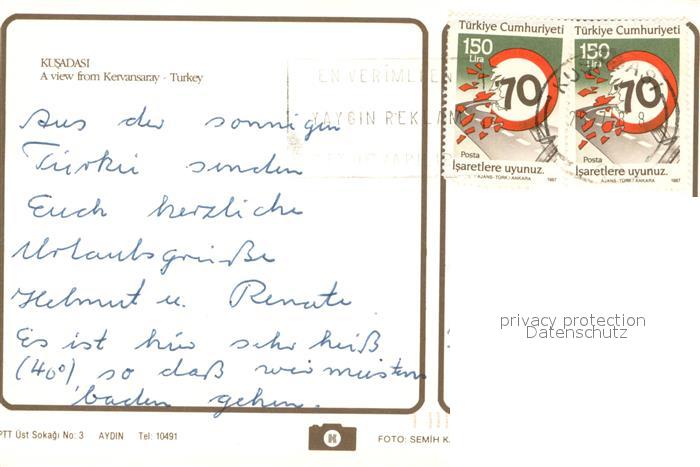 KUŞADASI
A view from Kervansaray - Turkey
Aus der sonnigen
Türkei senden
Euch herzliche
Urlaubsgrüße
Helmut u. Renate
Es ist hier sehr heiß
(40°) so daß wir meistens
baden gehen.
PTT Üst Sokağı No: 3 AYDIN Tel: 10491
K
FOTO: SEMİH
EN VERİMLİ
YAYGIN REKLAM
Türkiye Cumhuriyeti
150
Lira
70
Posta
İşaretlere uyunuz.
AJANS-TÜRK / ANKARA 1987
Türkiye Cumhuriyeti
150
Lira
70
Posta
İşaretlere uyunuz.
AJANS-TÜRK / ANKARA 1987
privacy protection
Datenschutz